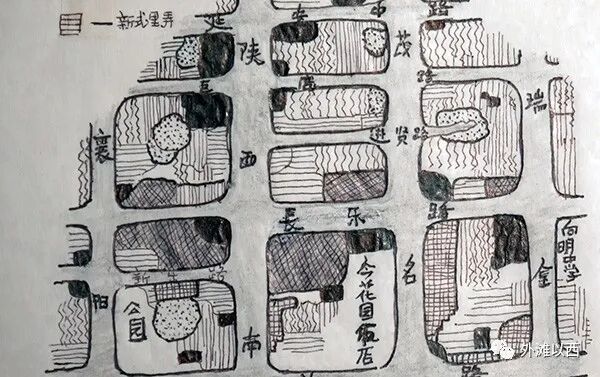 新式里弄
延安中路
陕西南
茂名
瑞金
襄阳
巨
路
进贤路
長乐路
新乐路
公园
今花园饭店
向明中学
路
外滩以西